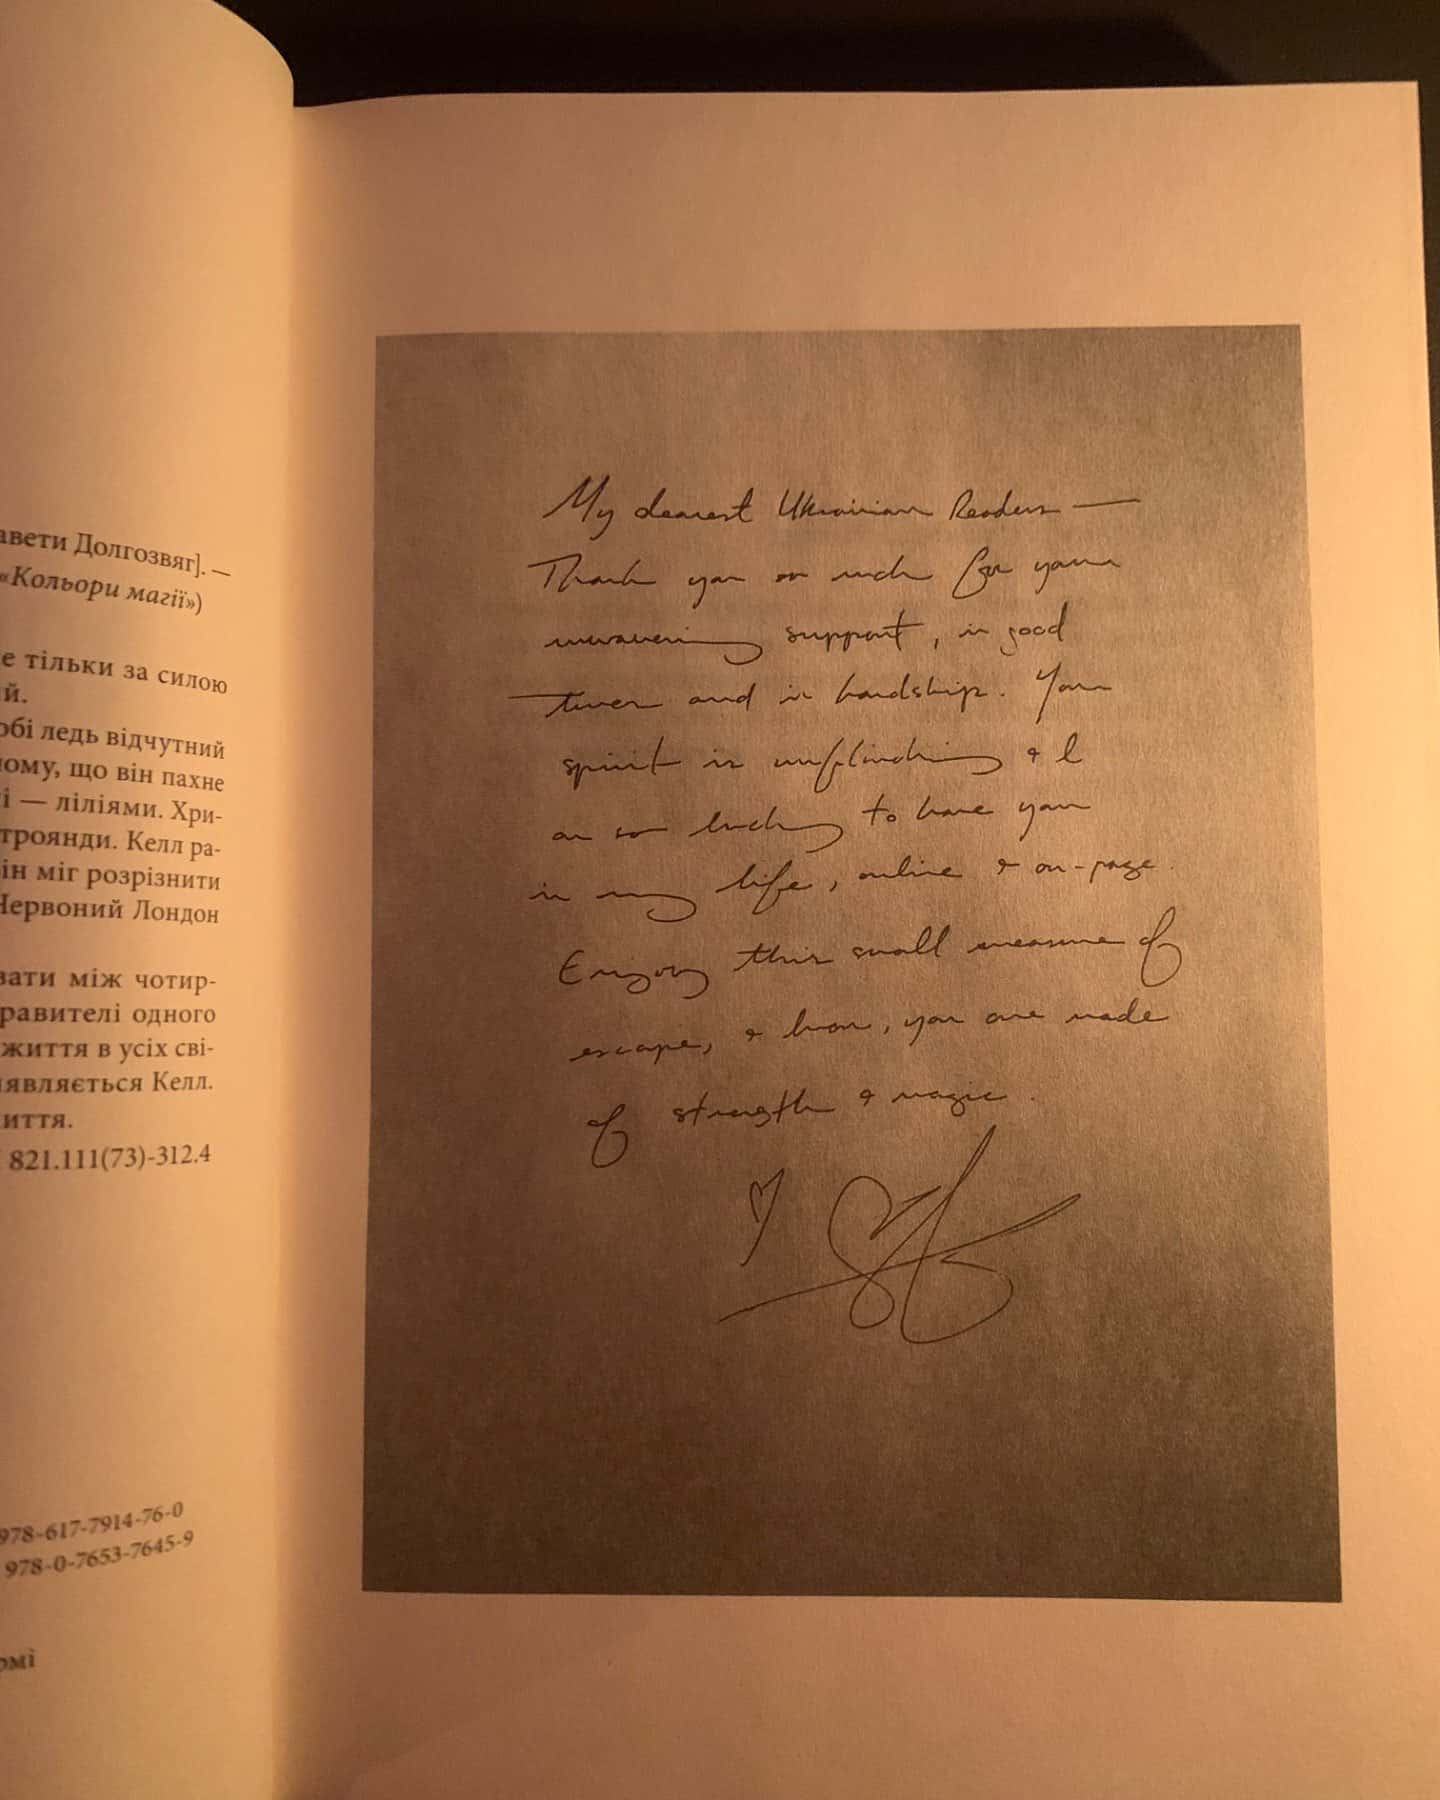 авети Долгозвяг]. —
«Кольори магії»)
е тільки за силою
й.
обі ледь відчутний
ому, що він пахне
і — ліліями. Хри-
троянди. Келл ра-
ін міг розрізнити
Червоний Лондон
вати між чотир-
равителі одного
життя в усіх сві-
являється Келл.
иття.
821.111(73)-312.4
978-617-7914-76-0
978-0-7653-7645-9
рмі
My dearest Ukrainian Readers —
Thank you so much for your
unwavering support, in good
times and in hardship. Your
spirit is unflinching & I
am so lucky to have you
in my life, online & on-page.
Enjoy this small measure of
escape, & know, you are made
of strength & magic.